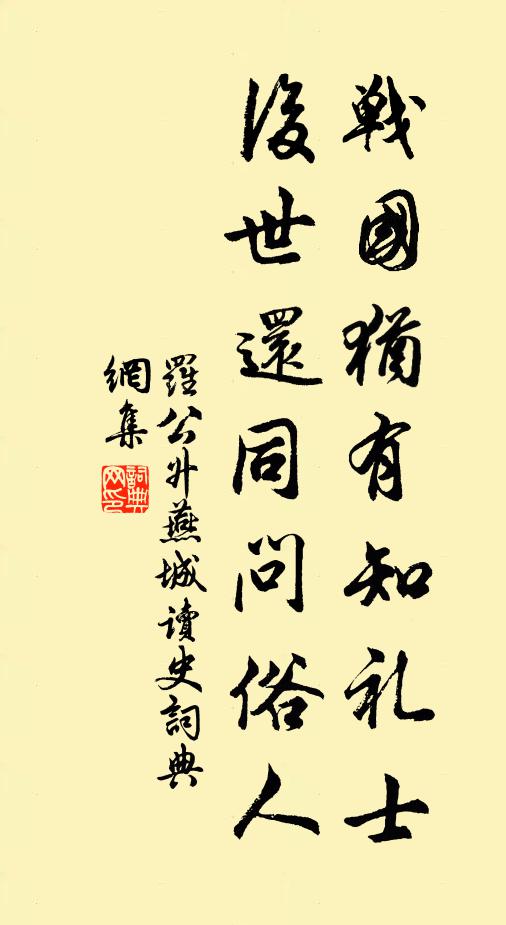 戰國猶有知礼士
後世還同問俗人
羅公升燕城讀史詞典
網集
詞典
网印